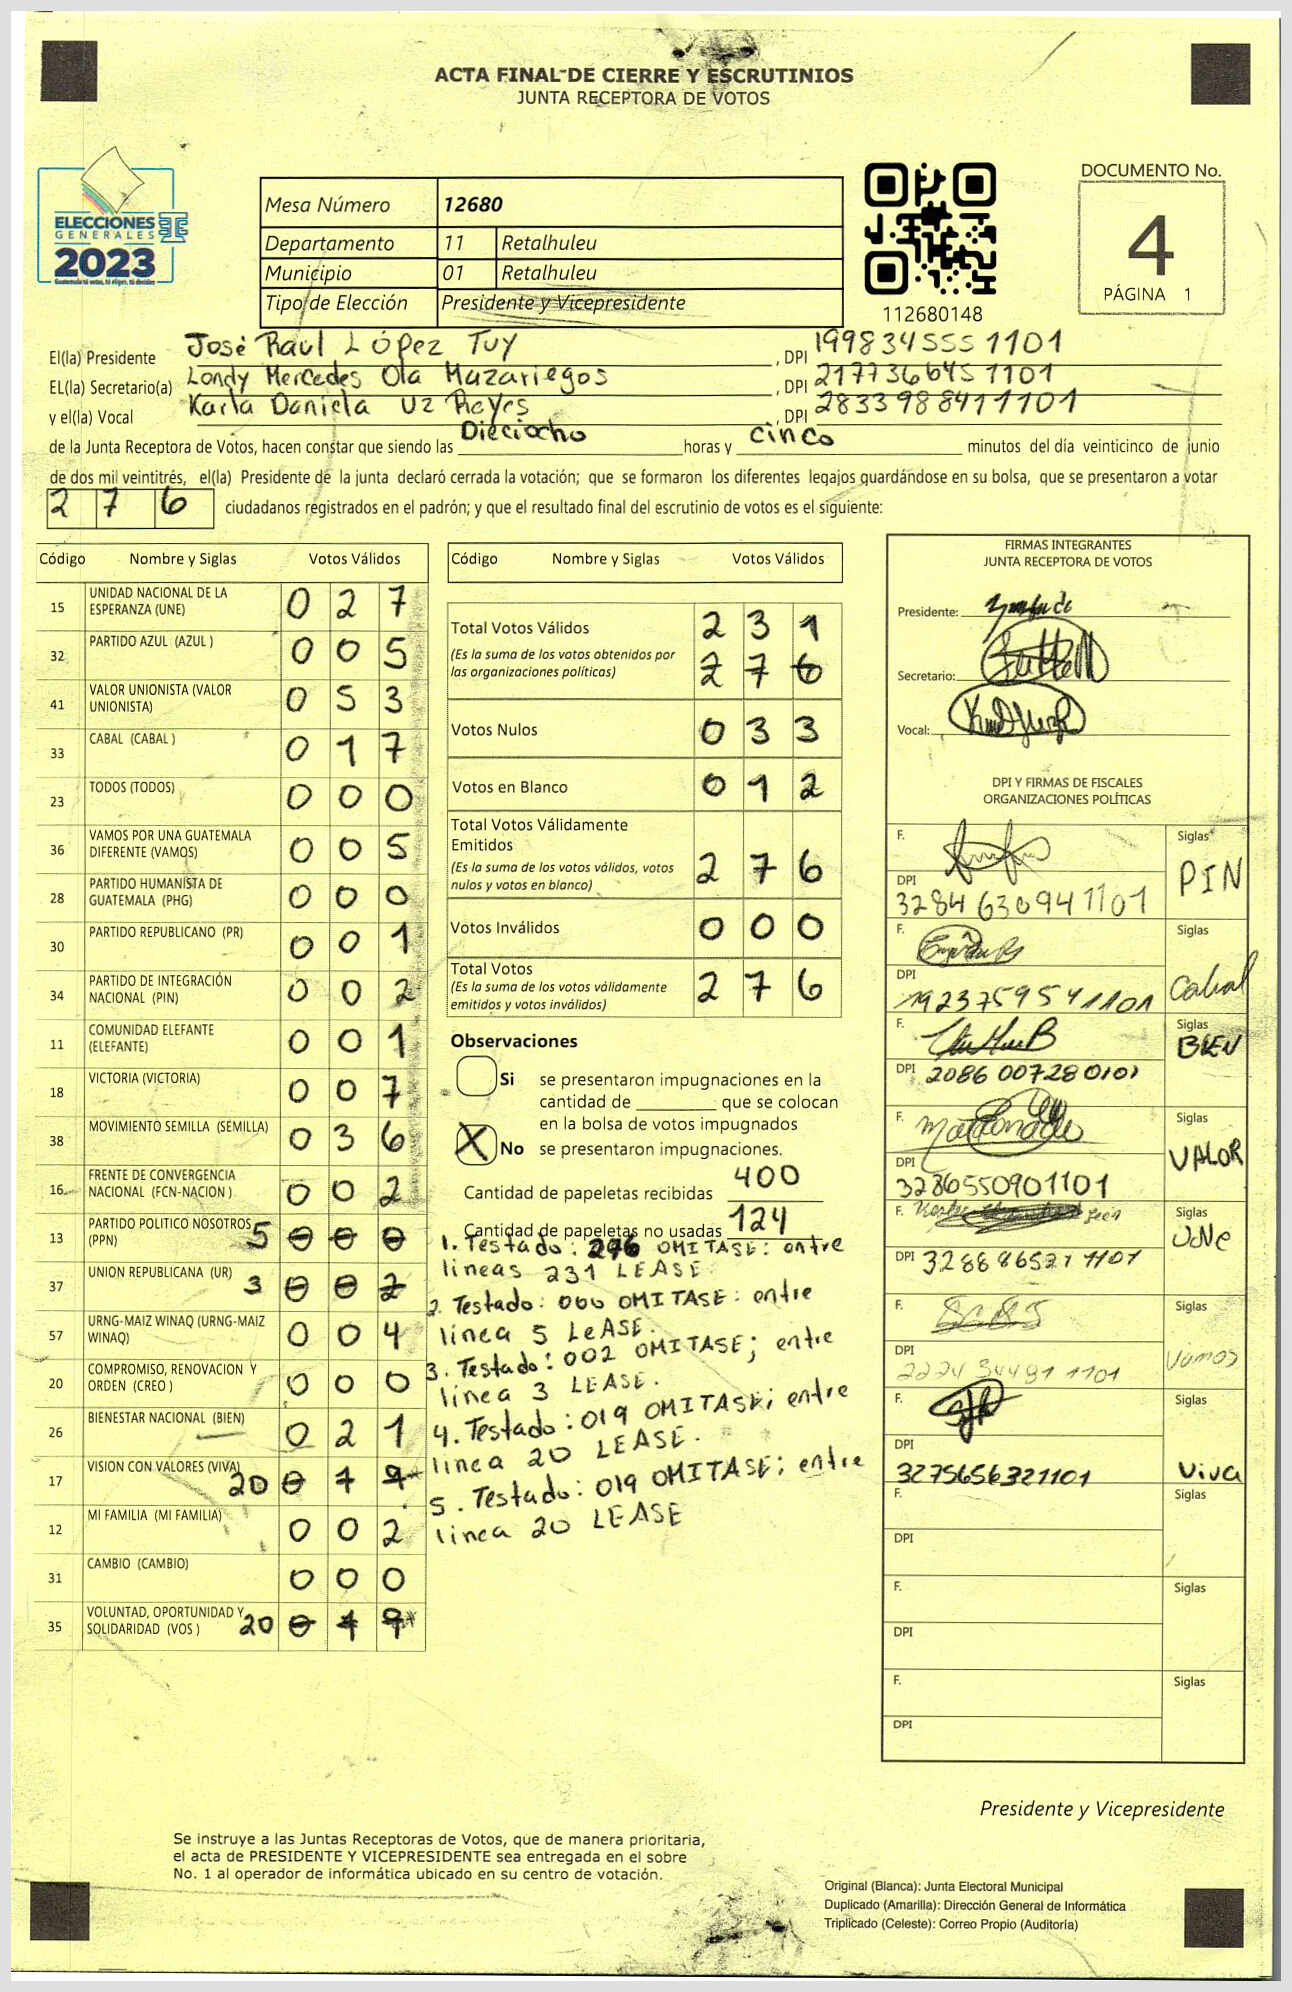 ACTA FINAL DE CIERRE Y ESCRUTINIOS
JUNTA RECEPTORA DE VOTOS
ELECCIONES
GENERALES
2023
Guatemala tú votas, tú eliges, tú decides
Mesa Número 12680
Departamento 11 Retalhuleu
Municipio 01 Retalhuleu
Tipo de Elección Presidente y Vicepresidente
112680148
DOCUMENTO No.
4
PÁGINA 1
El(la) Presidente José Raul López Tuy, DPI 1998345551101
EL(la) Secretario(a) Londy Mercedes Ola Mazariegos, DPI 2177366451101
y el(la) Vocal Karla Daniela Uz Reyes, DPI 2833988411101
de la Junta Receptora de Votos, hacen constar que siendo las Dieciocho horas y cinco minutos del día veinticinco de junio
de dos mil veintitrés, el(la) Presidente de la junta declaró cerrada la votación; que se formaron los diferentes legajos guardándose en su bolsa, que se presentaron a votar
2 7 6 ciudadanos registrados en el padrón; y que el resultado final del escrutinio de votos es el siguiente:
Código Nombre y Siglas Votos Válidos
15 UNIDAD NACIONAL DE LA ESPERANZA (UNE) 0 2 7
32 PARTIDO AZUL (AZUL ) 0 0 5
41 VALOR UNIONISTA (VALOR UNIONISTA) 0 5 3
33 CABAL (CABAL ) 0 1 7
23 TODOS (TODOS) 0 0 0
36 VAMOS POR UNA GUATEMALA DIFERENTE (VAMOS) 0 0 5
28 PARTIDO HUMANISTA DE GUATEMALA (PHG) 0 0 0
30 PARTIDO REPUBLICANO (PR) 0 0 1
34 PARTIDO DE INTEGRACIÓN NACIONAL (PIN) 0 0 2
11 COMUNIDAD ELEFANTE (ELEFANTE) 0 0 1
18 VICTORIA (VICTORIA) 0 0 7
38 MOVIMIENTO SEMILLA (SEMILLA) 0 3 6
16 FRENTE DE CONVERGENCIA NACIONAL (FCN-NACION ) 0 0 2
13 PARTIDO POLITICO NOSOTROS (PPN) 5 0 0 0
37 UNION REPUBLICANA (UR) 3 0 0 2
57 URNG-MAIZ WINAQ (URNG-MAIZ WINAQ) 0 0 4
20 COMPROMISO, RENOVACION Y ORDEN (CREO ) 0 0 0
26 BIENESTAR NACIONAL (BIEN) 0 2 1
17 VISION CON VALORES (VIVA) 20 0 1 9
12 MI FAMILIA (MI FAMILIA) 0 0 2
31 CAMBIO (CAMBIO) 0 0 0
35 VOLUNTAD, OPORTUNIDAD Y SOLIDARIDAD (VOS ) 20 0 1 9
Código Nombre y Siglas Votos Válidos
Total Votos Válidos 2 3 1
(Es la suma de los votos obtenidos por las organizaciones políticas) 2 7 6
Votos Nulos 0 3 3
Votos en Blanco 0 1 2
Total Votos Válidamente Emitidos
(Es la suma de los votos válidos, votos nulos y votos en blanco) 2 7 6
Votos Inválidos 0 0 0
Total Votos
(Es la suma de los votos válidamente emitidos y votos inválidos) 2 7 6
Observaciones
Si se presentaron impugnaciones en la
cantidad de ________ que se colocan
en la bolsa de votos impugnados
X No se presentaron impugnaciones.
Cantidad de papeletas recibidas 400
Cantidad de papeletas no usadas 124
1. Testado: 276 OMITASE: entre
lineas 231 LEASE.
2. Testado: 000 OMITASE: entre
linea 5 LeASE.
3. Testado: 002 OMITASE; entre
linea 3 LEASE.
4. Testado: 019 OMITASE; entre
linea 20 LEASE.
5. Testado: 019 OMITASE; entre
linea 20 LEASE
FIRMAS INTEGRANTES
JUNTA RECEPTORA DE VOTOS
Presidente:
Secretario:
Vocal:
DPI Y FIRMAS DE FISCALES
ORGANIZACIONES POLÍTICAS
F. Siglas PIN
DPI 3284630941101
F. Siglas Cabal
DPI 1923759541101
F. Siglas BIEN
DPI 2086007280101
F. Siglas VALOR
DPI 3286550901101
F. Siglas UNe
DPI 3288865271101
F. Siglas Vamos
DPI 2224344911101
F. Siglas Viva
DPI 3275656321101
F. Siglas
DPI
F. Siglas
DPI
F. Siglas
DPI
Presidente y Vicepresidente
Se instruye a las Juntas Receptoras de Votos, que de manera prioritaria,
el acta de PRESIDENTE Y VICEPRESIDENTE sea entregada en el sobre
No. 1 al operador de informática ubicado en su centro de votación.
Original (Blanca): Junta Electoral Municipal
Duplicado (Amarilla): Dirección General de Informática
Triplicado (Celeste): Correo Propio (Auditoría)